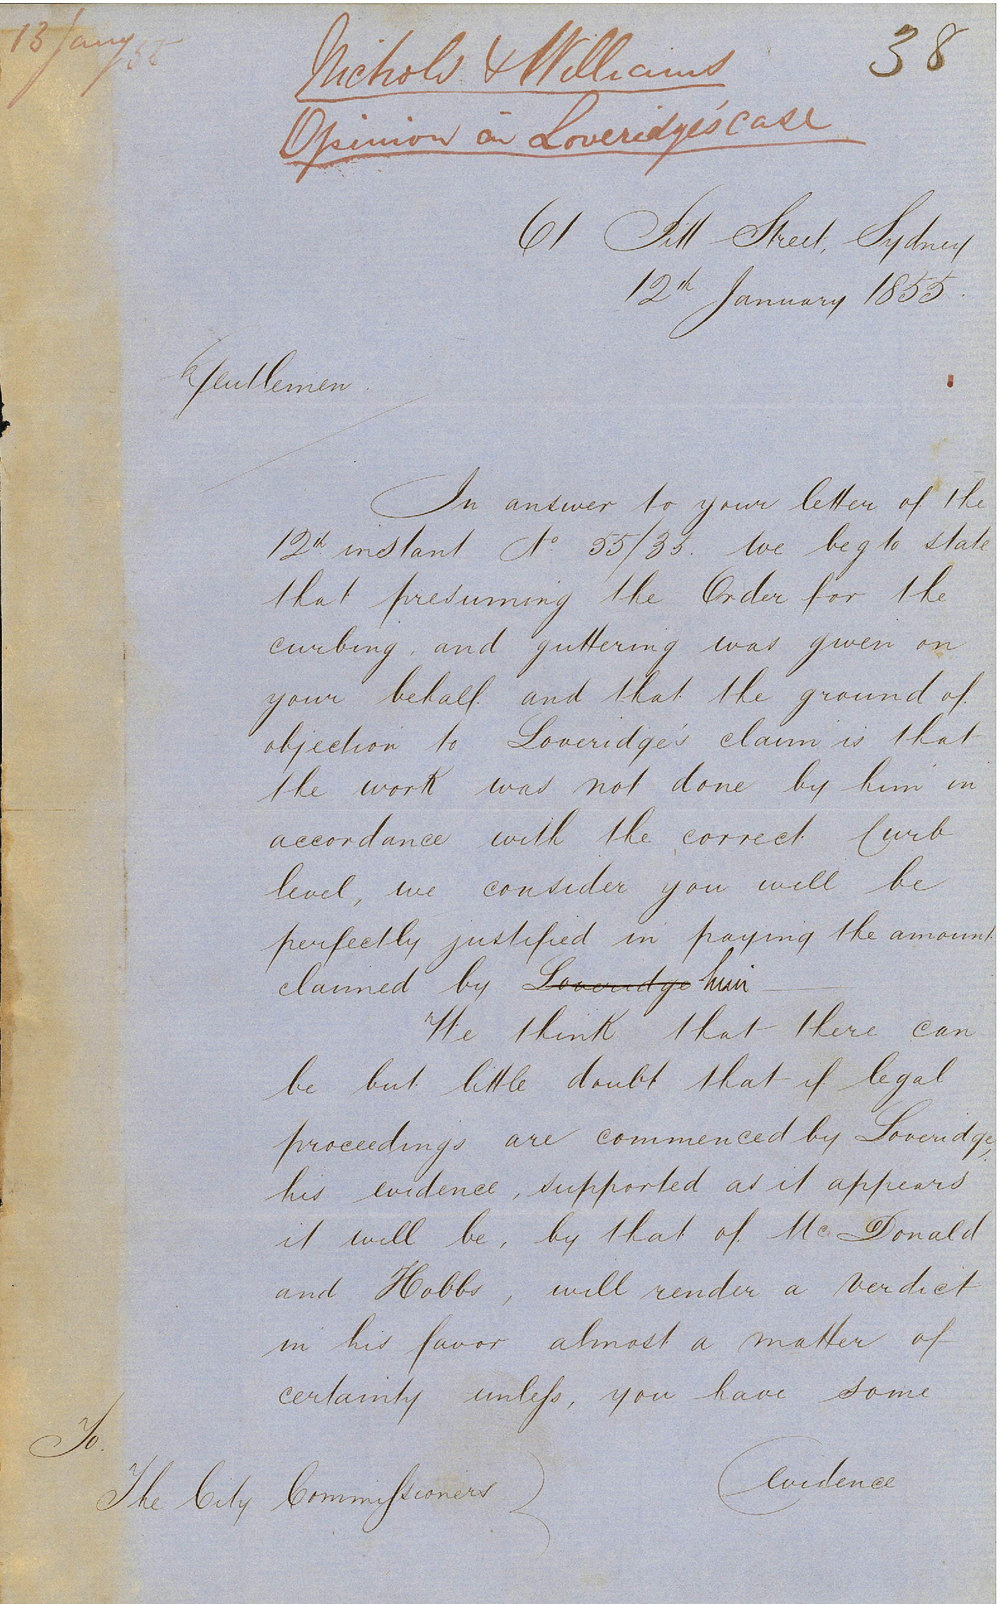 13 Jany 55
38
Nichols & Williams
Opinion in Loveridge's case
61 Pitt Street, Sydney
12th January 1855.
Gentlemen.
In answer to your letter of the
12th instant No 55/35. we beg to state
that presuming the Order for the
curbing, and guttering was given on
your behalf and that the ground of
objection to Loveridge's claim is that
the work was not done by him in
accordance with the correct Curb
level, we consider you will be
perfectly justified in paying the amount
claimed by Loveridge him
We think that there can
be but little doubt that if legal
proceedings are commenced by Loveridge,
his evidence, supported as it appears
it will be, by that of Mc Donald
and Hobbs, will render a verdict
in his favor almost a matter of
certainty unless, you have some
evidence
To.
The City Commissioners